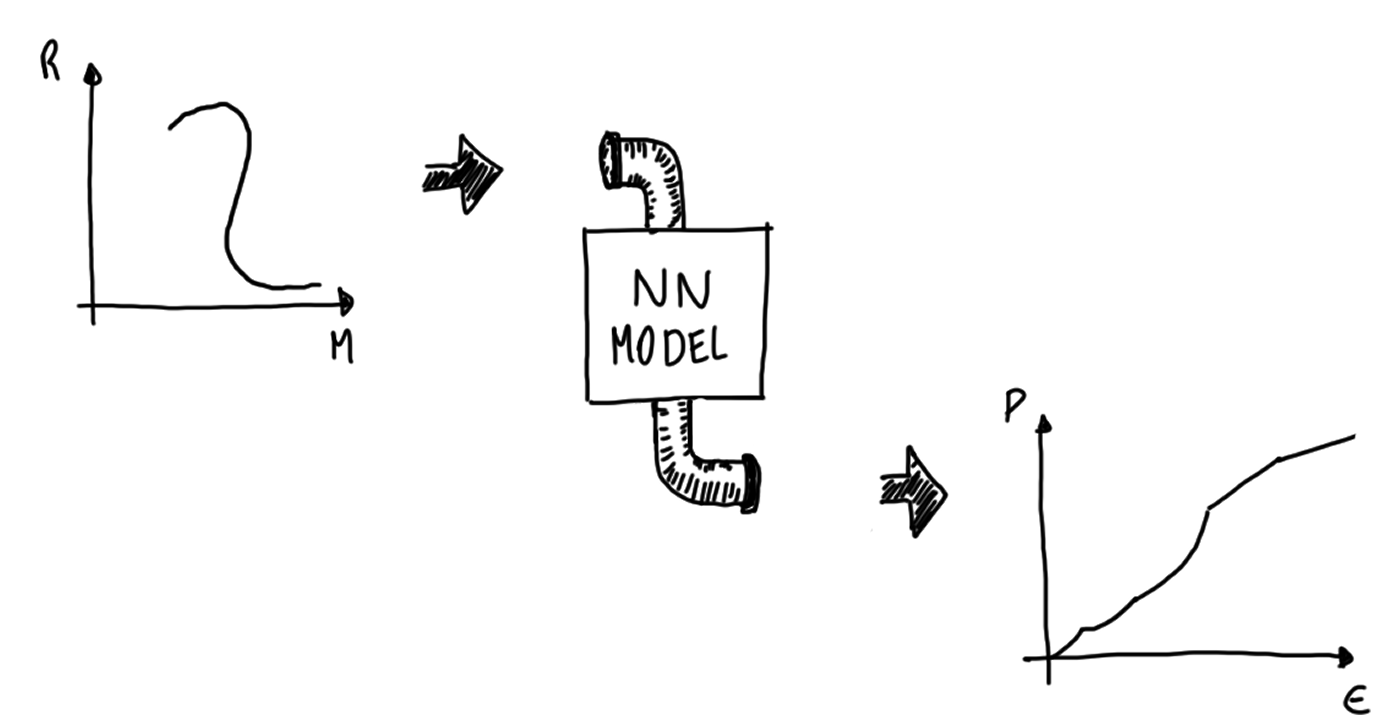 R
M
NN
MODEL
P
ε